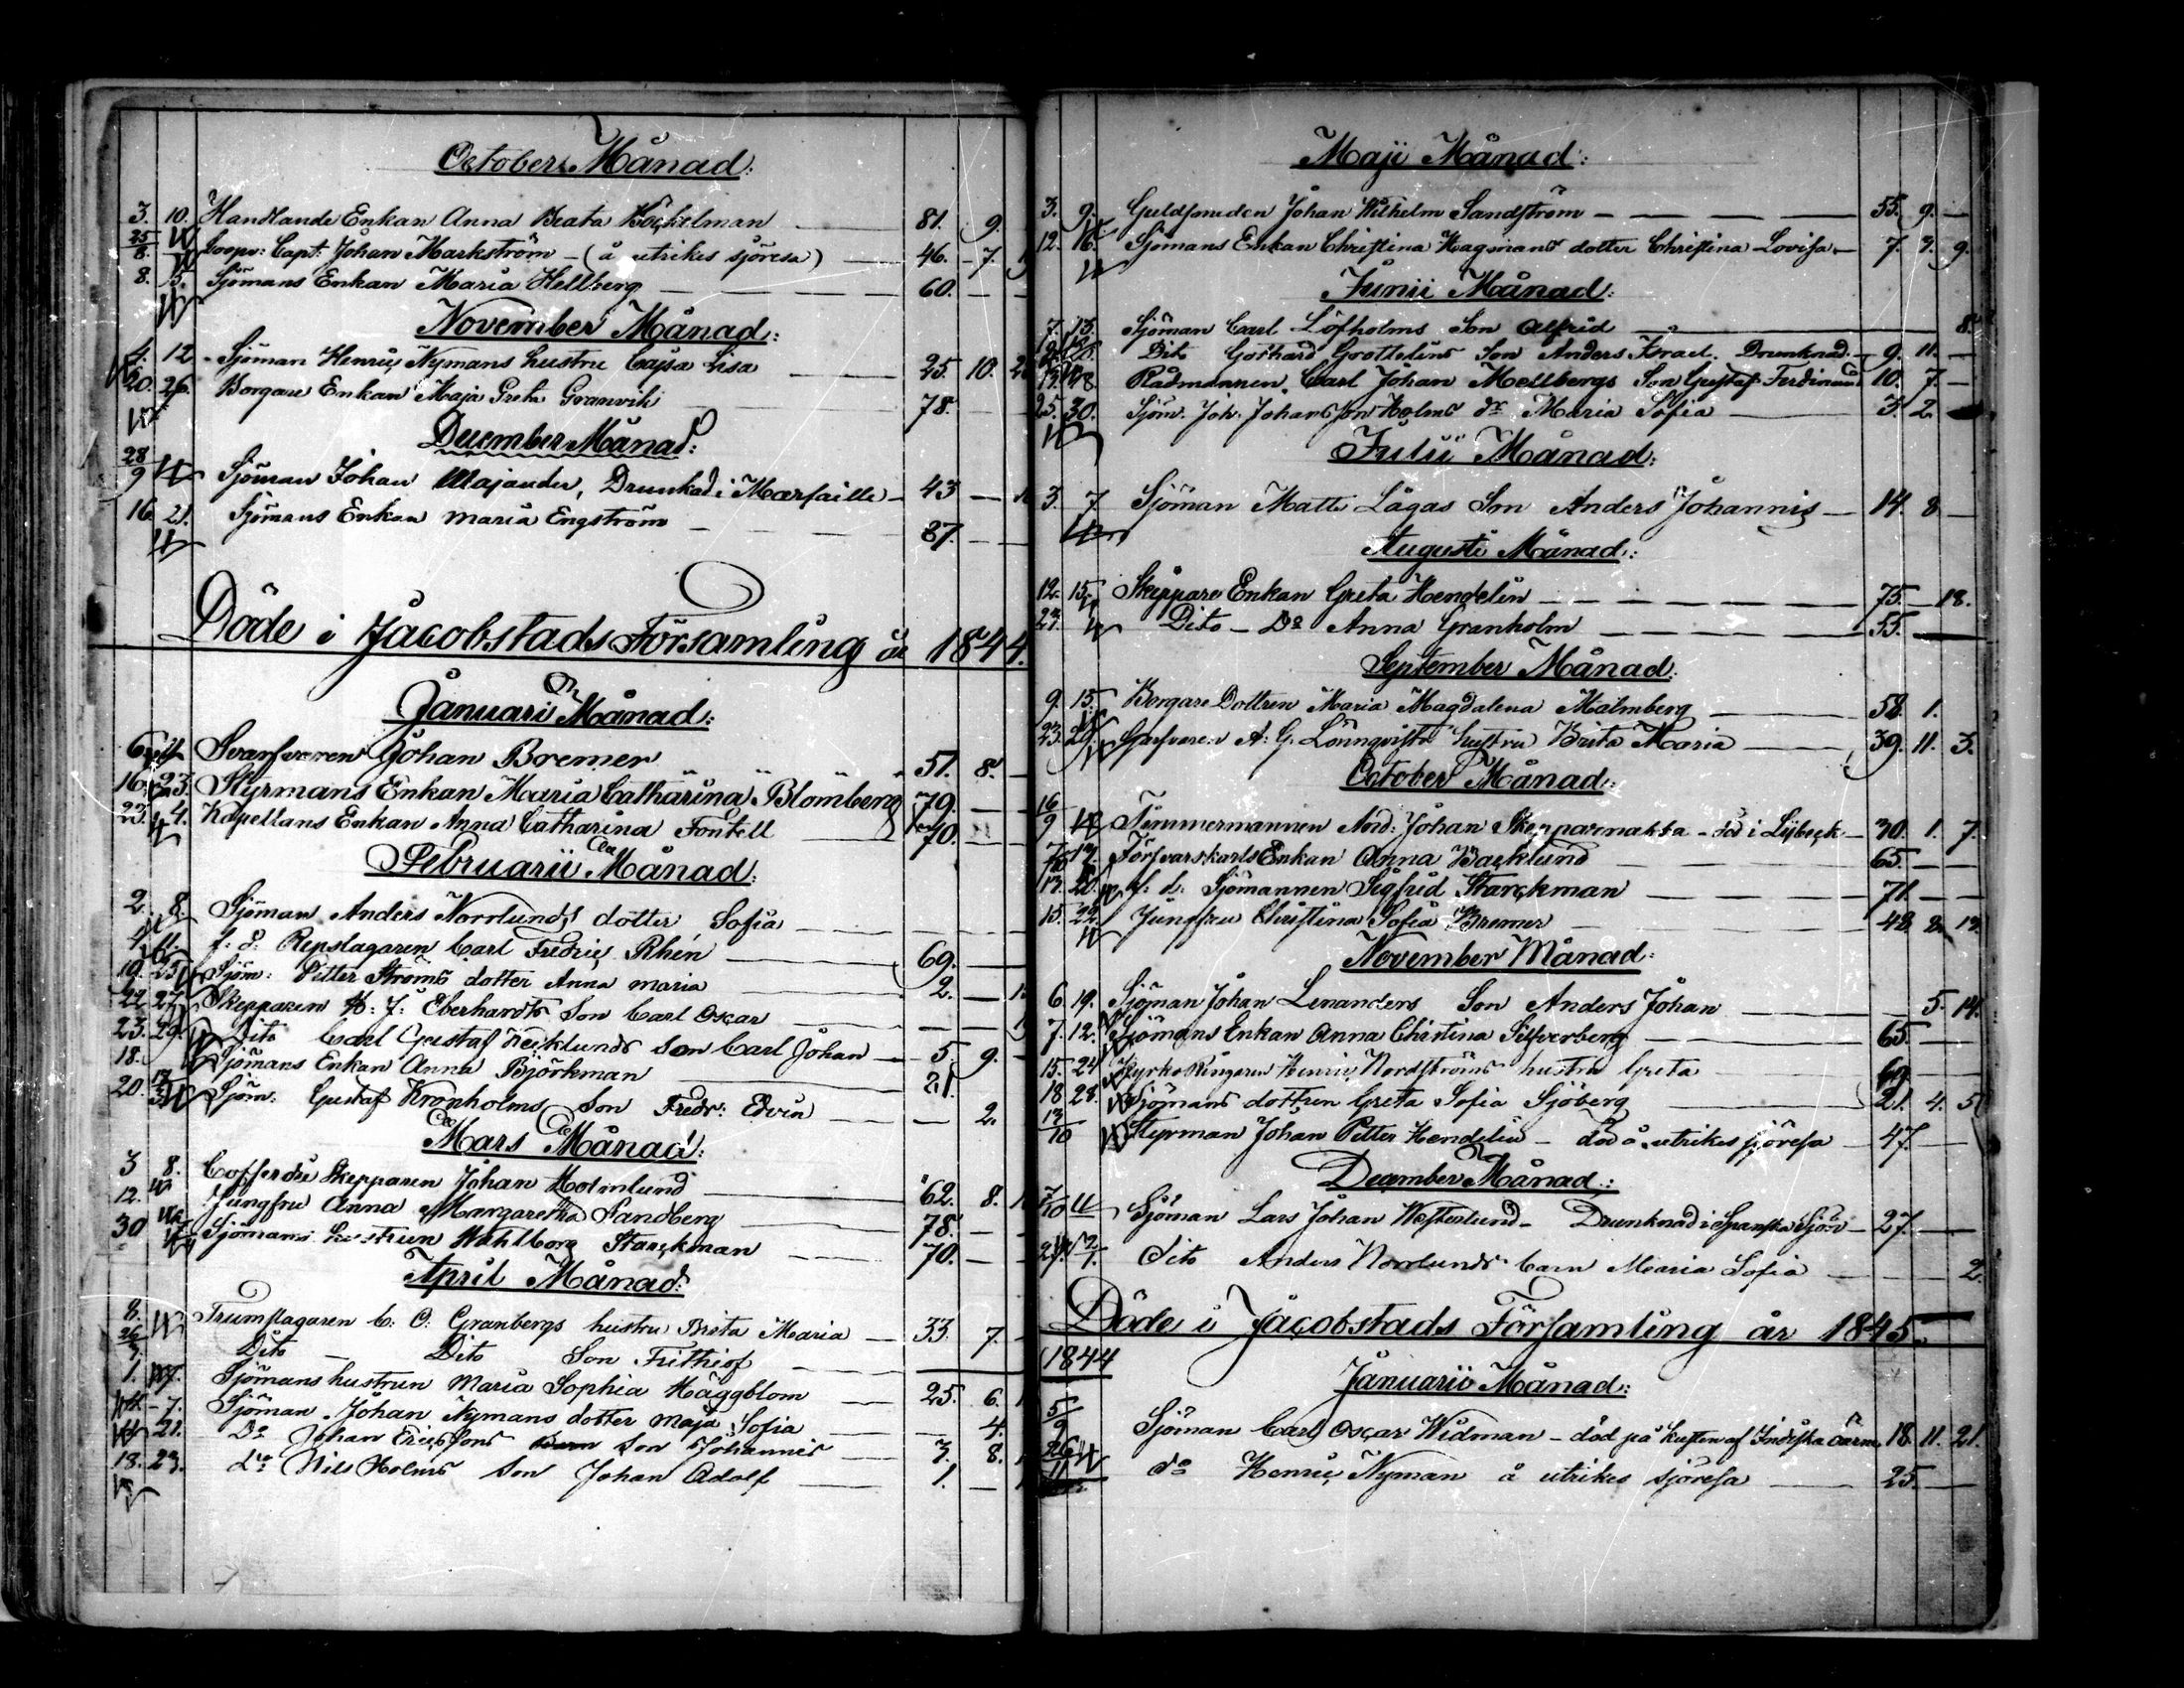 October Månad:
3. 10. Handlande Enkan Anna Beata Böckelman 81. 9.
25/8. Coopv: Capt: Johan Markström - (å utrikes sjöresa) 46. 7.
8. 15. Sjömans Enkan Maria Hellberg 60.
November Månad:
4. 12. Sjöman Henric Nymans hustru Cajsa Lisa 25. 10.
20. 26. Borgare Enkan Maja Greta Granvik 78.
December Månad:
28/9 Sjöman Johan Majander, Drunknad i Marsaille 43
16. 21. Sjömans Enkan Maria Engström 87.
Döde i Jacobstads Församling år 1844.
Januari Månad:
6. Svarfvaren Johan Bremer 51. 8.
16. 23. Styrmans Enkan Maria Catharina Blomberg 79.
23. 4. Kapellans Enkan Anna Catharina Fontell 70.
Februarii Månad:
2. 8. Sjöman Anders Norrlunds dotter Sofia
4. 11. f: d: Repslagaren Carl Fredric Rhén 69.
19. 25. Sjöm: Petter Ströms dotter Anna Maria 2.
22. 27. Skepparen H: J: Eberhardts Son Carl Oscar
23. 29. Dito Carl Gustaf Kecklunds Son Carl Johan 5. 9.
18. Sjömans Enkan Anna Björkman 21.
20. Sjöm: Gustaf Kronholms Son Fredr: Edvin 2.
Mars Månad:
3 8. Cofferdie Skepparen Johan Holmlund 62. 8.
12. Jungfru Anna Margaretha Sandberg 78.
30 Sjömans hustrun Wahlborg Starckman 70.
April Månad:
8. Trumslagaren C: O: Granbergs hustru Brita Maria 33. 7.
26/3. Dito Dito Son Frithiof
1. Sjömans hustrun Maria Sophia Häggblom 25. 6.
7. Sjöman Johan Nymans dotter Maja Sofia 4.
21. Do Johan Ericssons Son Johannis 3. 8.
18. 23. do Nils Holms Son Johan Adolf 1.
Maji Månad:
3. 9. Guldsmeden Johan Wilhelm Sandström 55. 9.
12. 16. Sjömans Enkan Christina Hagmans dotter Christina Lovisa 7. 9. 9.
Junii Månad:
7. 13. Sjöman Carl Löfholms Son Alfrid 8.
Dito Gothard Grottelins Son Anders Israel. Drunknad 9. 11.
13. 18. Rådmannen Carl Johan Mellbergs Son Gustaf Ferdinand 10. 7.
25. 30. Sjöm. Joh. Johansson Holms dr Maria Sofia 3. 2.
Julii Månad:
3. 7. Sjöman Matts Lågas Son Anders Johannis 14. 8.
Augusti Månad:
12. 15. Skeppare Enkan Greta Hengelin 75. 18.
27. Dito Do Anna Granholm 55.
September Månad.
9. 15. Borgare Dottren Maria Magdalena Malmberg 58. 1.
23. 29. Garfvaren A: G: Lönnqvists hustru Brita Maria 39. 11. 3.
October Månad:
16/9 Timmermannen And: Johan Skepparnakka - död i Lybeck 30. 1. 7.
Försvarskarls Enkan Anna Backlund 65.
13. 20. f: d: Sjömannen Sigfrid Starckman 71.
15. 22. Jungfru Christina Sofia Bremer 48. 8. 19.
November Månad:
6. 19. Sjöman Johan Lenanders Son Anders Johan 5. 14.
7. 12. Sjömans Enkan Anna Christina Silfverberg 65.
15. 24. Kyrko Ringaren Henric Nordströms hustru Greta 69.
18 28. Sjömans dottren Greta Sofia Sjöberg 21. 4. 5
13/10 Styrman Johan Petter Hendelin - död å utrikes sjöresa 47.
December Månad:
7/10 Sjöman Lars Johan Westerlund - Drunknad i Spanska Sjön 27.
27. Dito Anders Norrlunds barn Maria Sofia 2.
Döde i Jacobstads Församling år 1845.
1844
Januarii Månad:
5/9 Sjöman Carl Oscar Widman - död på kusten af Indiska öarne 18. 11. 21.
26/11 do Henric Nyman å utrikes sjöresa 25.